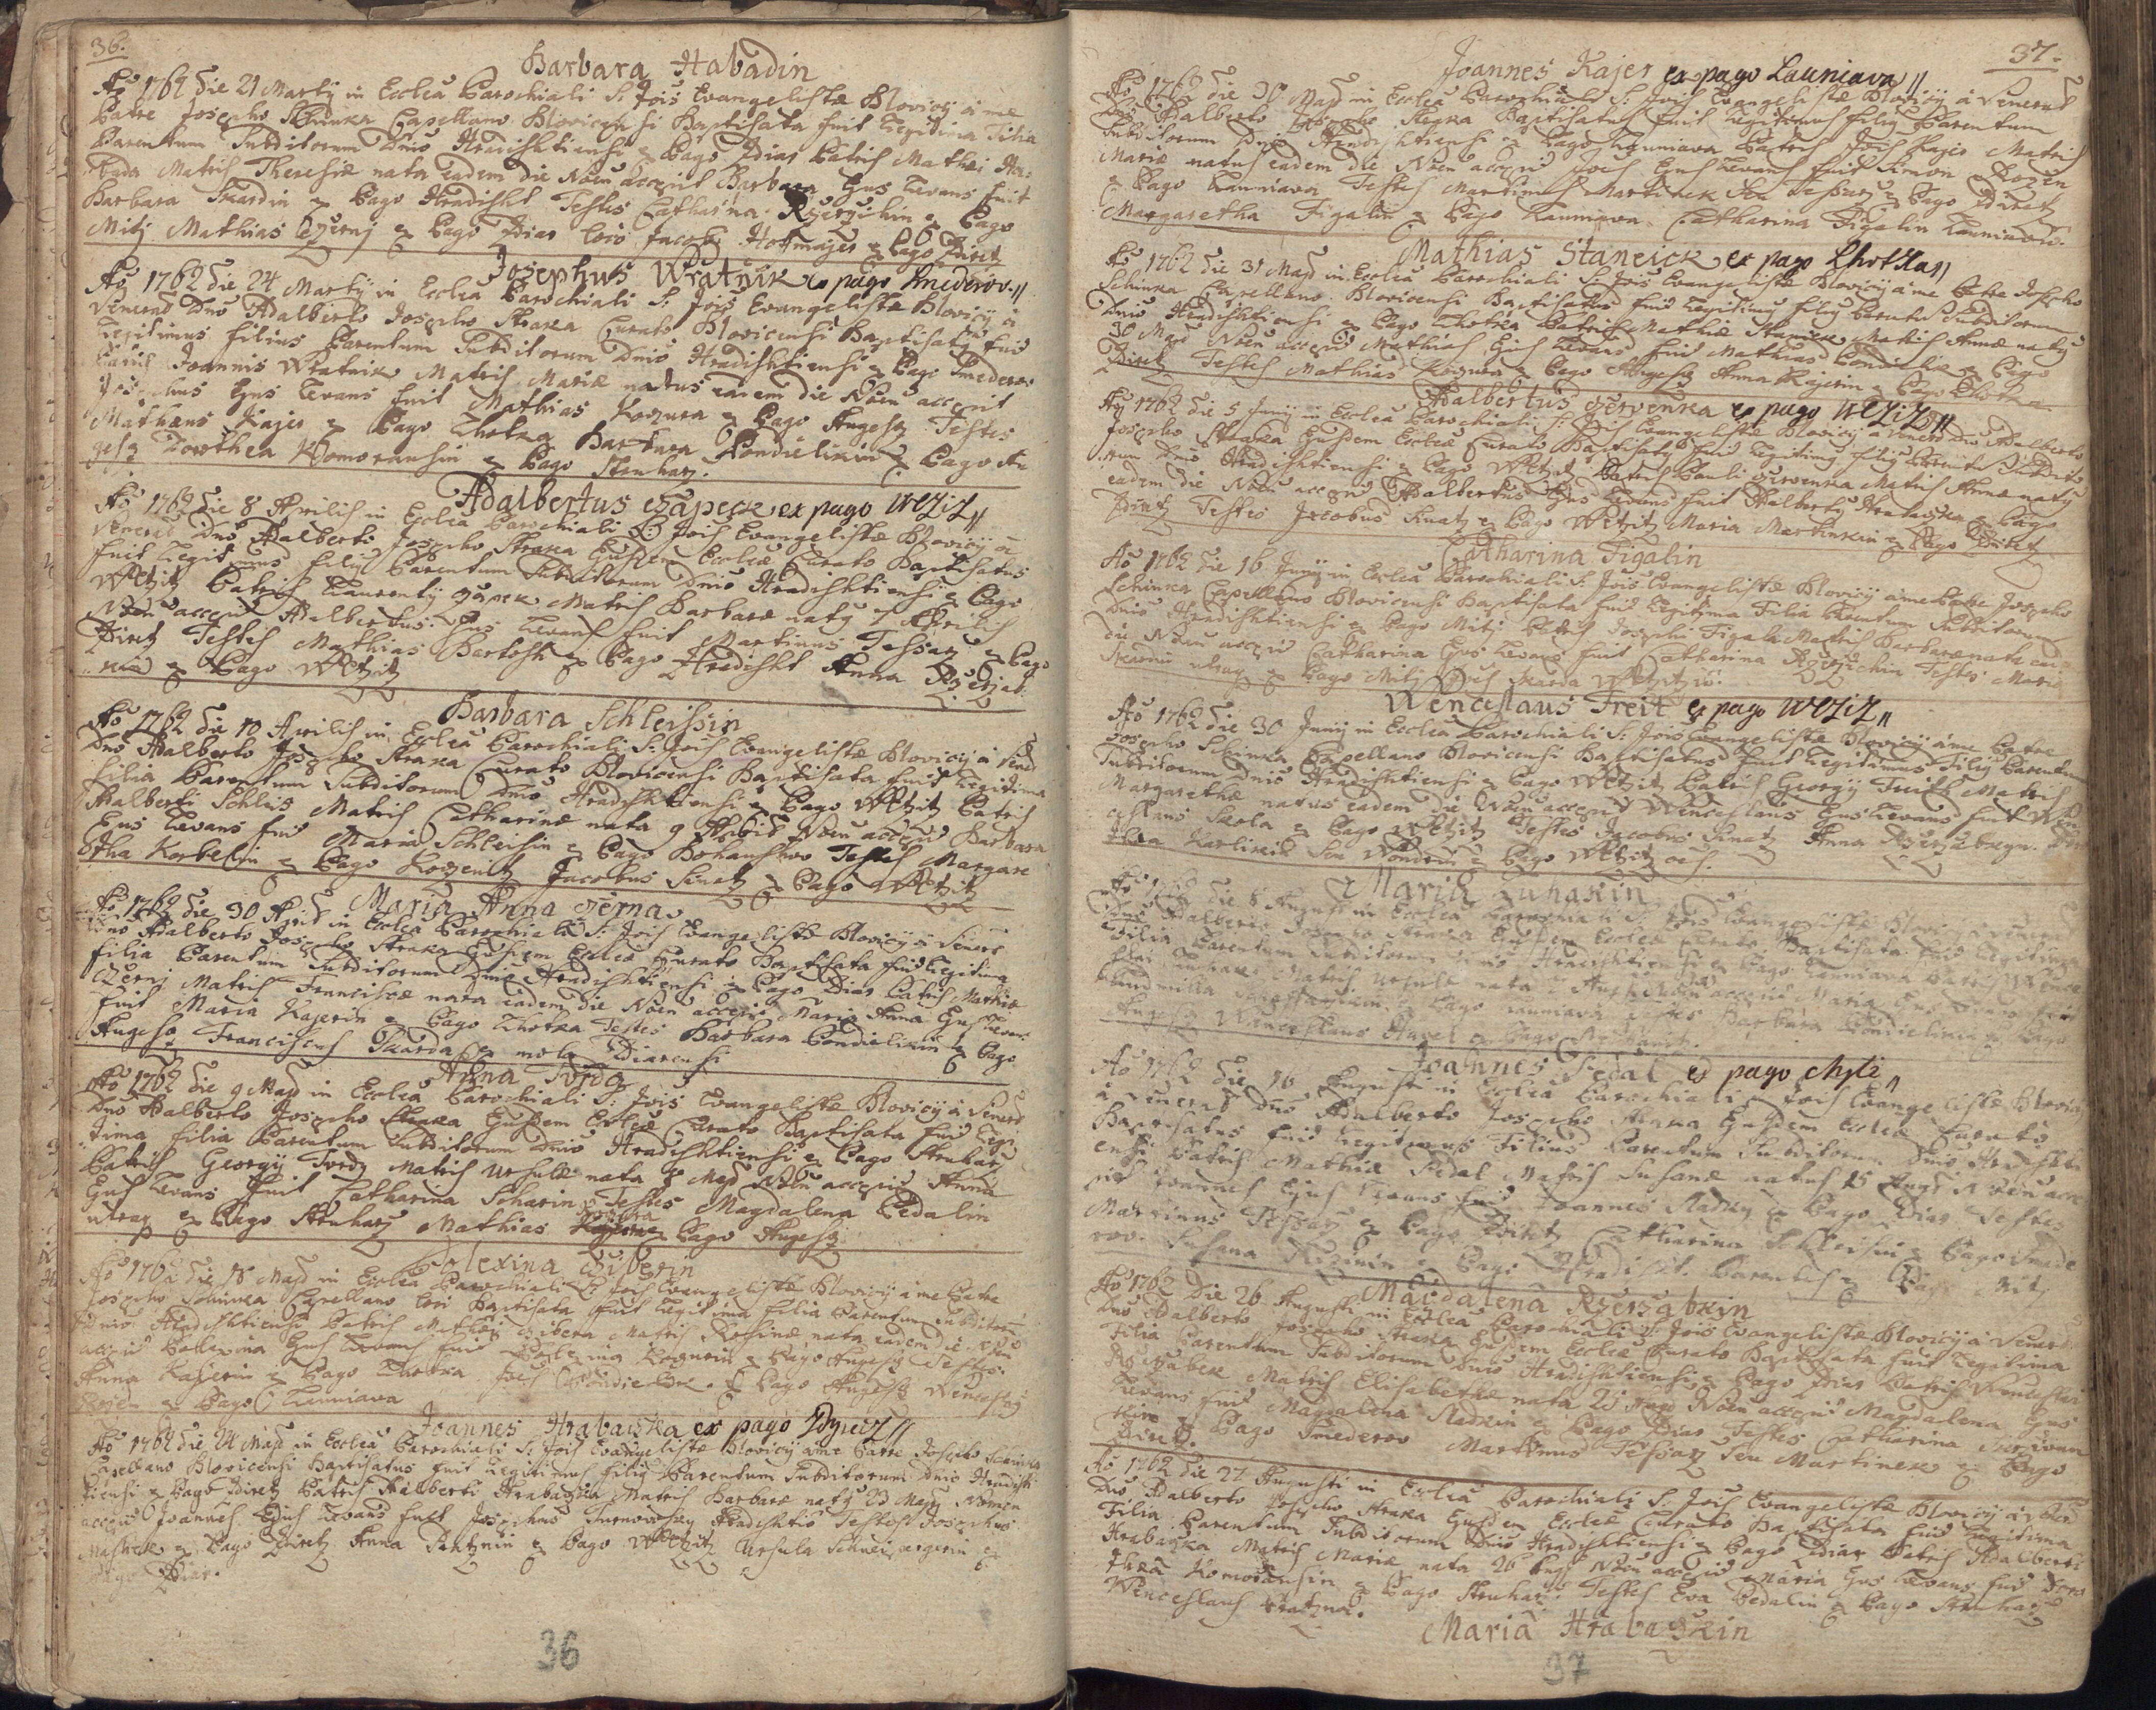 36.
Barbara Habadin
Aō 1762 die 21 Martij in Ecclēa Parochiali S: Jōis Evangelistæ Blovicij à me
Patre Josepho Schinka Capellano Blovicensi Baptisata fuit Legitima Filia
Parentum Subditorum Dnio Hradishtiensi ex Pago Zdiar Patris Mathæi Ha-
bada Matris Theresiæ nata eadem die Nōēn accepit Barbara Ejus Levans fuit
Barbara Skardin ex Pago Hradisht Testes Catharina ex Pago
Mitj Mathias Czernj ex Pago Zdiar loco Jacobi Hoffmajer ex Pago Zdiretz
Josephus Wratnik ex pago Smederov.
Aō 1762 die 24 Martij in Ecclēa Parochiali S: Jōis Evangelistæ Blovicij à
Venerd Dno Adalberto Josepho Straka Curato Blovicensi Baptisaty fuit
Legitimus filius Parentum Subditorum Dnio Hradishtiensi ex Pago Smederov
Patris Joannis Wratnik Matris Mariæ natus eadem die Nōēn accepit
Josephus Ejus Levans fuit Mathias Koznura ex Pago Augesz Testes
Mathæus Kajer ex Pago Lhotka Barbara Kondielikin ex Pago Au
gesz Dorothea Komoraushin ex Pago Struharz.
Adalbertus czapeck ex pago Weziz
Aō 1762 die 8 Aprilis in Ecclēa Parochiali S: Jōis Evangelistæ Blovicij à
Venerd Dno Adalberto Josepho Straka Ejusdem Ecclēæ Curato Baptisatus
fuit Legitimus filij Parentum Subditorum Dnio Hradishtiensi ex Pago
Wŕetzitz Patris Laurentij Matris Barbaræ naty 7 Aprilis
Nōēn accepit Adalbertus Ejus Levans fuit Martinus Tessarz ex Pago
Zdiretz Testes Mathias Bartosh ex Pago Hradisht Anna Rzerzab
kin ex Pago Wŕetzitz
Barbara Schleissin
Aō 1762 die 10 Aprilis in Ecclēa Parochiali S: Jōis Evangelistæ Blovicij à Vend
Dno Adalberto Josepho Straka Curato Blovicensi Baptisata fuit Legitima
filia Parentum Subditorum Dnio Hradishtiensi ex Pago Wŕetzitz Patris
Adalberti Schleis Matris Catharinæ nata 9 Aprilis Nōēn accepit Barbara
Ejus Levans fuit Maria Schleisin ex Pago Testes Margare
tha Korbelin ex Pago Jacobus Sinatz ex Pago Wŕetzitz
Maria Anna Czerna
Aō 1762 die 30 Aprild in Ecclēa Parochiali S: Jōis Evangelistæ Blovicij à Venerd
Dno Adalberto Josepho Straka Ejusdem Ecclēæ Curato Baptisata fuit Legitima
filia Parentum Subditorum Dnio Hradishtiensi ex Pago Zdiar Patris Mathiæ
Czernj Matris Franciscæ nata eadem die Nōēn accepit Maria Anna Ejus Levans
fuit Maria Kajerin ex Pago Lhotka Testes Barbara Condielikin ex Pago
Augesz Franciscus Skarda ex mola Zdiarensi
Anna Twrda
Aō 1762 die 9 Majd in Ecclēa Parochiali S: Jōis Evangelistæ Blovicij à Venerd
Dno Adalberto Josepho Straka Ejusdem Ecclēæ Curato Baptisata fuit Legi
tima filia Parentum Subditorum Dnio Hradishtiensi ex Pago Struharz
Patris Georgij Twrdy Matris Ursulæ nata 8 Majd Nōēn accepit Anna
Ejus Levans fuit Catharina Testes Magdalena Pedalin
utraq ex Pago Struharz Mathias ex Pago Augesz
Polexina Ciberin
Aō 1762 die 18 Majd in Ecclēa Parochiali S: Jōis Evangelistæ Blovicij à me Patre
Josepho Schinka Capellano loci Baptisata fuit Legitima filia Parentum Subditor
Dnio Hradishtiensi Patris Mathæi Cibera Matris Rosinæ nata eadem die Nōēn
accepit Polexina Ejus Levans fuit Polexina ex Pago Augesz Testes
Anna Kajerin ex Pago Lhotka Jōes Condielik ex Pago Augesz Wenceslaus
ex Pago Launiava
Joannes Hrabaczka ex pago Zdyretz
Aō 1762 die 24 Majd in Ecclēa Parochiali S: Jōis Evangelistæ Blovicij à me Patre Josepho Schinka
Capellano Blovicensi Baptisatus fuit Legitimus filij Parentum Subditorum Dnio Hradish
tiensi ex Pago Zdiretz Patris Adalberti Hrabaczka Matris Barbaræ naty 23 Majd Nomen
accepit Joannes Ejus Levans fuit Josephus Turnowsky Hradishtio Testes Josephus
Mashek ex Pago Zdiretz Anna ex Pago Wŕetzitz Ursula ex
Pago Zdiar.
36
37.
Joannes Kajer ex pago Launiava
Aō 1762 die 30 Majd in Ecclēa Parochiali S: Jōis Evangelistæ Blovicij à Venerd
Dno Adalberto Josepho Straka Baptisatus fuit Legitimus filij Parentum
Subditorum Dnio Hradishtiensi ex Pago Launiava Patris Jōis Kajer Matris
Mariæ natus eadem die Nōēn accepit Joes Ejus Levans fuit Simon
ex Pago Launiava Testes Martinus Martinek seu Tessarz ex Pago Zdiretz
Margaretha Figalin ex Pago Launiava Catharina Figalin Launiavio.
Mathias Staneick ex pago Lhotka
Aō 1762 die 31 Majd in Ecclēa Parochiali S: Jōis Evangelistæ Blovicij à me Patre Josepho
Schinka Capellano Blovicensi Baptisatus fuit Legitimy filij Parentu Subditorum
Dnio Hradishtiensi ex Pago Lhotka Patris Mathiæ Staneick Matris Annæ naty
30 Majd Nōēn accepit Mathias Ejus Levans fuit Mathias Condielik ex Pago
Testes Mathias ex Pago Augesz Anna Kajerin ex Pago Lhotka
Adalbertus czervenka ex pago Weziz
Aō 1762 die 5 Junij in Ecclēa Parochiali S: Jōis Evangelistæ Blovicij à Venerd Dno Adalberto
Josepho Straka Ejusdem Ecclēæ Curato Baptisaty fuit Legitimy filij Parentu Subdito
rum Dnio Hradishtiensi ex Pago Wŕetzitz Patris Pauli czervenka Matris Annæ naty
eadem die Nōēn accepit Adalbertus Ejus Levans fuit Adalberty Hrabaczka ex Pago
Zdiretz Testes Jacobus Sinatz ex Pago Wŕetzitz Maria Martinkin ex Pago Zdiretz
Catharina Figalin
Aō 1762 die 16 Junij in Ecclēa Parochiali S: Jōis Evangelistæ Blovicij à me Patre Josepho
Schinka Capellano Blovicensi Baptisata fuit Legitima Filia Parentum Subditorum
Dnio Hradishtiensi ex Pago Mitj Patris Josephi Figala Matris Barbaræ nata ead
die Nōēn accepit Catharina Ejus Levans fuit Catharina Testes Maria
Skardin utraq ex Pago Mitj Joes Skarda
Wenceslaus Freit ex pago Weziz
Aō 1762 die 30 Junij in Ecclēa Parochiali S: Jōis Evangelistæ Blovicij à me Patre
Josepho Schinka Capellano Blovicensi Baptisatus fuit Legitimus Filij Parentum
Subditorum Dnio Hradishtiensi ex Pago Wŕetzitz Patris Georgij Matris
Margarethæ natus eadem die Nōēn accepit Wenceslaus Ejus Levans fuit Wen
ceslaus Skola ex Pago Wŕetzitz Testes Jacobus Sinatz Anna
ex Pago Wŕetzitz
Maria Zuhakin
Aō 1762 die 8 Augusti in Ecclēa Parochiali S: Jōis Evangelistæ Blovicij à Venerd
Dno Adalberto Josepho Straka Ejusdem Ecclēæ Curato Baptisata fuit Legitima
Filia Parentum Subditorum Dnio Hradishtiensi ex Pago Launiava Patris Wence
slai Matris Ursulæ nata Nōēn accepit Maria Ejus Levans fuit
Ludmilla ex Pago Launiava Testes Barbara Condielikin ex Pago
Augesz Wenceslaus ex Pago
Joannes Pedal ex pago Myti
Aō 1762 die 16 Augusti in Ecclēa Parochiali S: Jōis Evangelistæ Blovicij
à Venerd Dno Adalberto Josepho Straka Ejusdem Ecclēæ Curato
Baptisatus fuit Legitimus Filius Parentum Subditorum Dnio Hradishti
ensi Patris Mathiæ Pedal Matris Susanæ natus 15 Augd Nōēn acce
pit Joannes Ejus Levans fuit Joannes ex Pago Zdiar Testes
Martinus Tessarz ex Pago Zdiretz Catharina Schleisin ex Pago Smede
rov. Susana ex Pago Hradisht. Parentes ex Pago Mitj
Magdalena Rzerzabkin
Aō 1762 Die 26 Augusti in Ecclēa Parochiali S: Jōis Evangelistæ Blovicij à Venerd
Dno Adalberto Josepho Straka Ejusdem Ecclēæ Curato Baptisata fuit Legitima
Filia Parentum Subditorum Dnio Hradishtiensi ex Pago Zdiar Patris Wenceslai
Rzerzabek Matris Elisabethæ nata 25 Augd Nōēn accepit Magdalena Ejus
Levans fuit Magdalena ex Pago Zdiar Testes Catharina
ex Pago Smederov Martinus Tessarz seu Martinek ex Pago
Zdiretz.
Aō 1762 Die 27 Augusti in Ecclēa Parochiali S: Jōis Evangelistæ Blovicij à Vend
Dno Adalberto Josepho Straka Ejusdem Ecclēæ Curato Baptisata fuit Legitima
Filia Parentum Subditorum Dnio Hradishtiensi ex Pago Zdiar Patris Adalberti
Hrabaczka Matris Mariæ nata 26 Augd Nōēn accepit Maria Ejus Levans fuit Doro
thea Komoraushin ex Pago Struharz Testes Eva Pedalin ex Pago Struharz
Wenceslaus
Maria Hrabaczkin
37